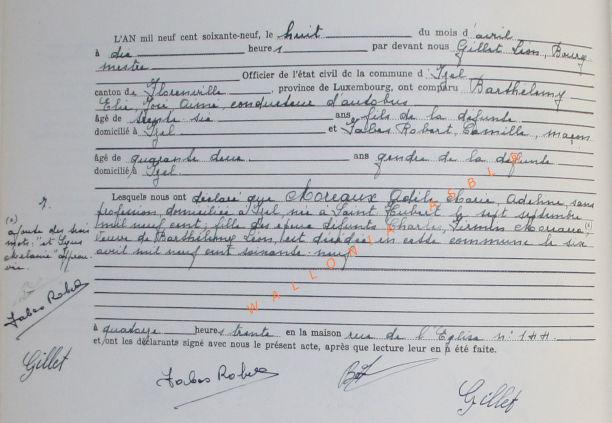 L'AN mil neuf cent soixante-neuf, le huit du mois d'avril
à dix heures par devant nous Gillet Léon, Bourg
mestre
Officier de l'état civil de la commune d'Izel
canton de Florenville, province de Luxembourg, ont comparu Barthélemy
Elie, José Aimé, conducteur d'autobus
âgé de trente six ans, fils de la défunte
domicilié à Izel et Jabas Robert, Camille, maçon
âgé de quarante deux ans gendre de la défunte
domicilié à Izel
Lesquels nous ont déclaré que Moreaux Odile Marie, Adeline, sans
profession domiciliée à Izel, née à Saint Hubert le sept septembre
mil neuf cent; fille des époux défunts Charles, Firmin Moreaux (1)
veuve de Barthélemy Léon, est décédée en cette commune le six
avril mil neuf cent soixante-neuf
à quatorze heures trente en la maison rue de l'Eglise n° 144
et ont les déclarants signé avec nous le présent acte, après que lecture leur en a été faite.
7.
ajoute des trois
mots: "et
Jabas Robert
Gillet
Jabas Robert
Gillet
WALLONIA ASBL